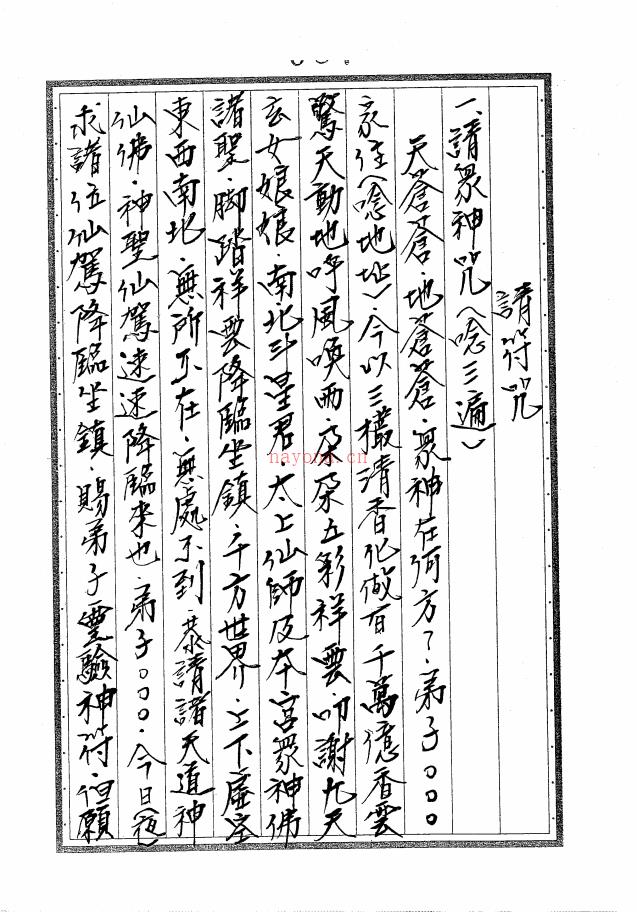 請符咒
一、請眾神咒(唸三遍)
天蒼蒼．地蒼蒼．眾神在何方？．弟子○○○
家住(唸地址)．今以三欉清香化做百千萬億香雲
驚天動地呼風喚雨．朵朵五彩祥雲．叩謝九天
玄女娘娘．南北斗星君．太上仙師及本宮眾神佛
諸聖．腳踏祥雲降臨坐鎮．千方世界．上下虛空
東西南北．無所不在．無處不到．恭請諸天道神
仙佛．神聖仙駕速速降臨來也．弟子○○○．今日(夜)
求諸位仙駕降臨坐鎮．賜弟子靈驗神符．但願
nayona.cn